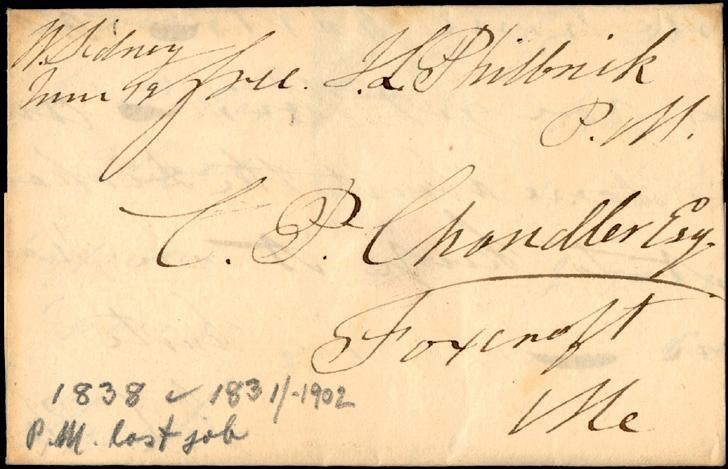 W. Sidney
June 19 free. J. L. Philbrik
P. M.
C. P. Chandler Esq
Foxcroft
Me
1838 ✓ 1831/-1902
P.M. lost job